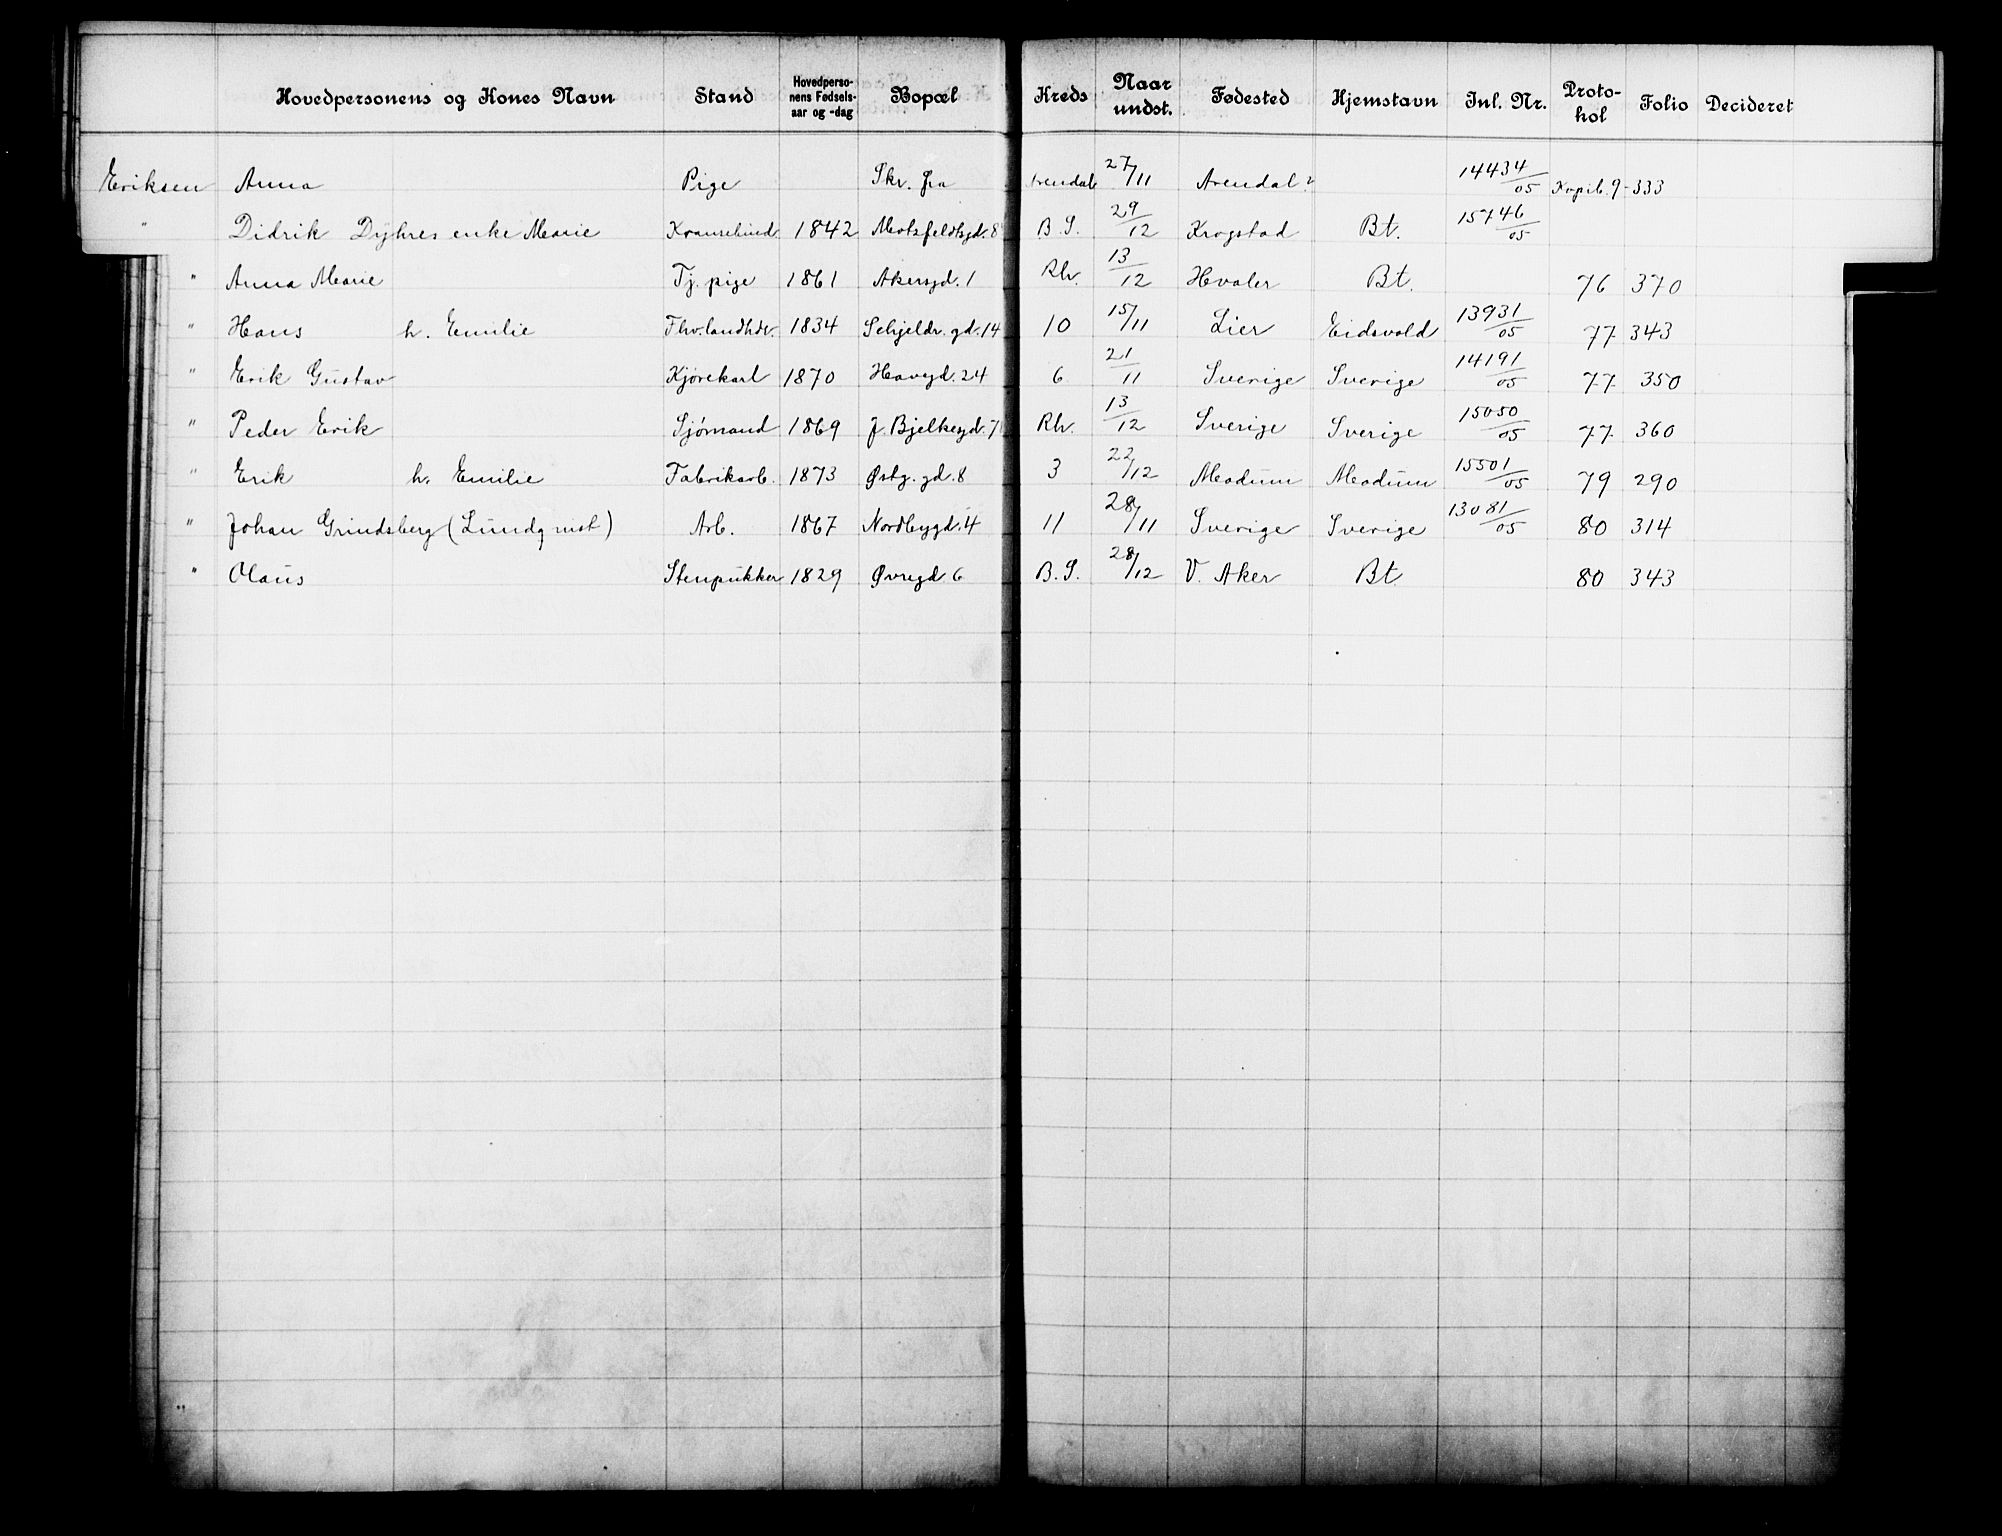 Hovedpersonens og Kones Navn Stand Hovedperso-nens Fødsels-aar og -dag Bopæl Kreds Naar undst. Fødested Hjemstavn Jnl. Nr. Proto-kol Folio Decideret
Eriksen Anna Pige Skr. fra Arendal 27/11 Arendal? 14434/05 Kopib. 9-333
" Didrik Dyhres enke Marie Kransebind. 1842 Motzfeldtsgd. 8 B.S. 29/12 Krogstad Bt. 15746/05
" Anna Marie Tj. pige 1861 Akersgd. 1 Rh. 13/12 Hvaler Bt. 76 370
" Hans h. Emilie Fhv. landhdr. 1834 Schjeldr. gd. 14 10 15/11 Lier Eidsvold 13931/05 77 343
" Erik Gustav Kjørekarl 1870 Havegd. 24 6 21/11 Sverige Sverige 14191/05 77 350
" Peder Erik Sjømand 1869 J. Bjelkesgd. 7 Rh. 13/12 Sverige Sverige 15050/05 77 360
" Erik h. Emilie Fabrikarb. 1873 Østg. gd. 8 3 22/12 Modum Modum 15501/05 79 290
" Johan Grindsberg (Lundqvist) Arb. 1867 Nordbygd. 4 11 28/11 Sverige Sverige 13081/05 80 314
" Olaus Stenpukker 1829 Øvregd 6 B.S. 28/12 V. Aker Bt. 80 343